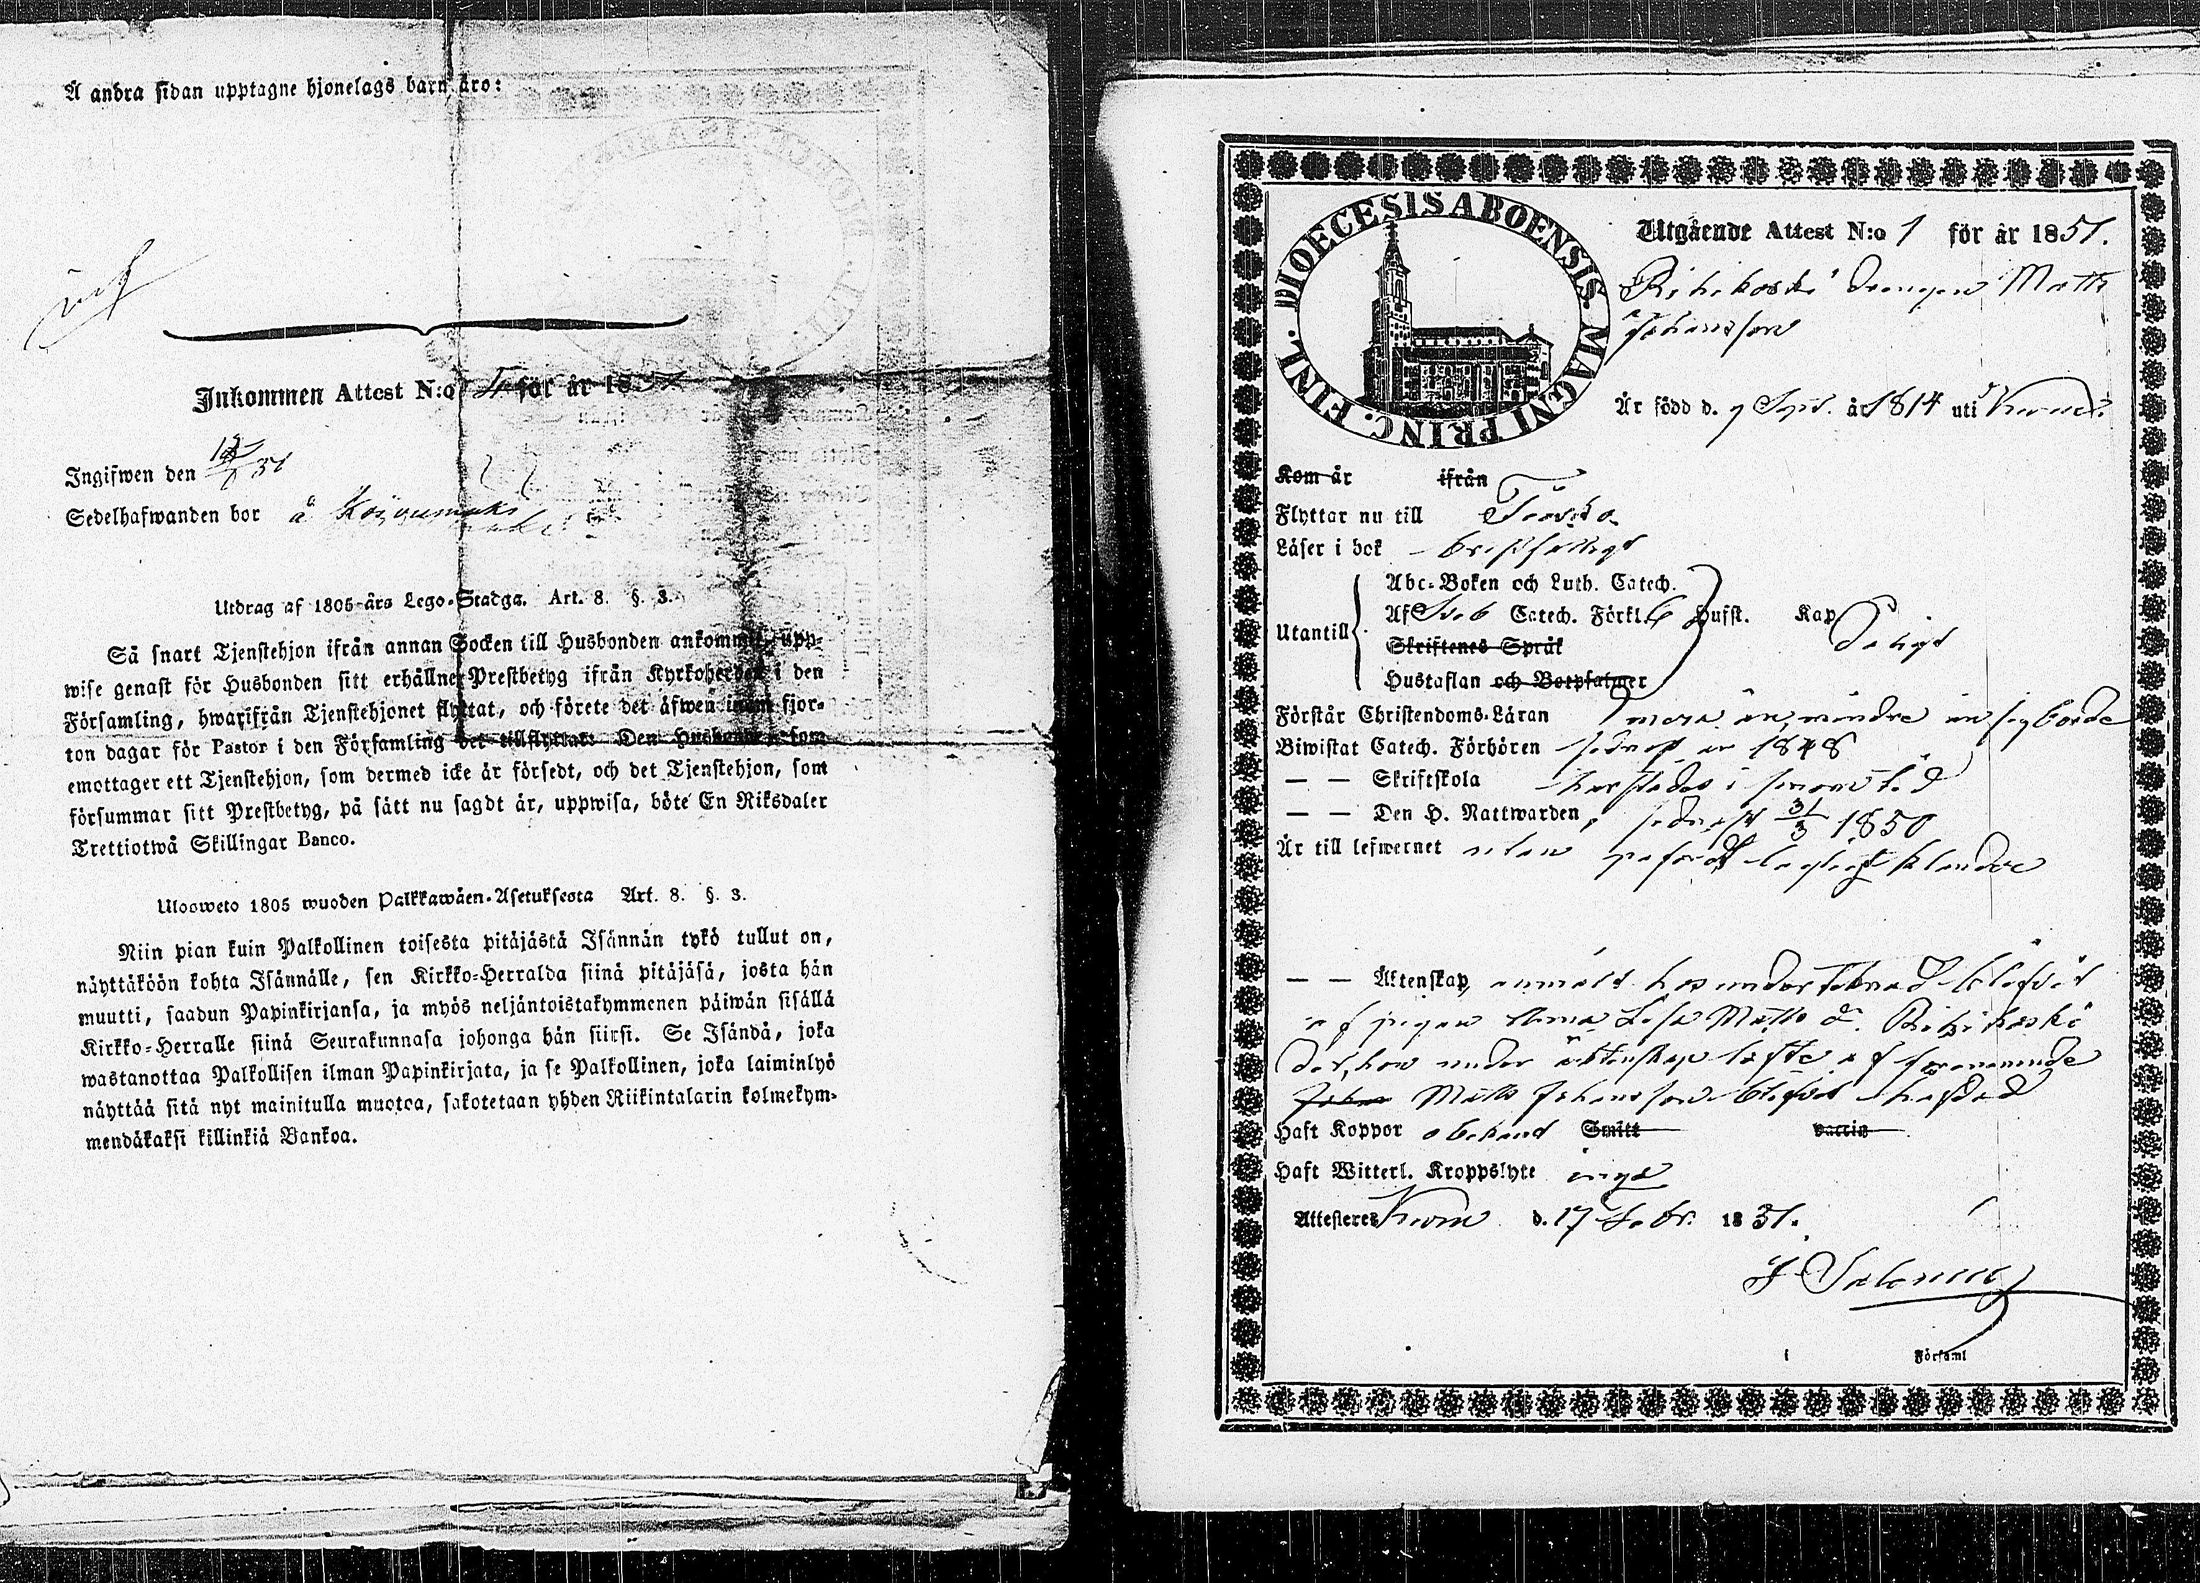 Å andra sidan upptagne hjonelags barn äro:
Inkommen Attest N:o för år 18
Ingifwen den 51
Sedelhafwanden bor å
Utdrag af 1805 års Lego-Stadga. Art. 8. §. 3.
Så snart Tjenstehjon ifrån annan Socken till Husbonden ankommit, upp-
wise genast för Husbonden sitt erhållne Prestbetyg ifrån Kyrkoherden i den
Församling, hwarifrån Tjenstehjonet flyttat, och förete det äfwen inom fjor-
ton dagar för Pastor i den Församling det tillflyttat. Den Husbonden som
emottager ett Tjenstehjon, som dermed icke är försedt, och det Tjenstehjon, som
försummar sitt Prestbetyg, på sätt nu sagdt är, uppwisa, böte En Riksdaler
Trettiotwå Skillingar Banco.
Ulosweto 1805 wuoden Palkkawäen-Asetuksesta Art. 8. §. 3.
Niin pian kuin Palkollinen toisesta pitäjästä Isännän tykö tullut on,
näyttäköön kohta Isännälle, sen Kirkko-Herralda siinä pitäjäsä, josta hän
muutti, saadun Papinkirjansa, ja myös neljäntoistakymmenen päiwän sisällä
Kirkko-Herralle siinä Seurakunnasa johonga hän siirsi. Se Isändä, joka
wastanottaa Palkollisen ilman Papinkirjata, ja se Palkollinen, joka laiminlyö
näyttää sitä nyt mainitulla muotoa, sakotetaan yhden Riikintalarin kolmekym-
mendäkaksi killinkiä Bankoa.
DIOECESIS ABOENSIS. MAGNI PRINC. FINL.
Utgående Attest N:o 1 för år 1851.
Ritikoski drengen Matts
Johansson
Är född d. 9 Sept. år 1814 uti
Kom år ifrån
Flyttar nu till
Läser i bok
Abc-Boken och Luth. Catech.
Utantill Af Sveb Catech. Förkl. 6 Hufst. Kap
Skriftenes Språk
Hustaflan och Botpsalmer
Förstår Christendoms-Läran mera än mindre än sig borde
Biwistat Catech. Förhören sednast år 1848
— — Skriftskola härstädes i sinom tid
— — Den H. Nattwarden, sednast 31/3 1850
Är till lefwernet utan påfördt lagligt klander
— — Äktenskap, anmält hos undertecknad blifvit
af pigan Anna Lisa Matts d. Ritikoski
det hon under äktenskaps löfte af förenämnde
Johan Matts Johansson blifvit häfdad
Haft Koppor obekand Smitt vaccin
Haft Witterl. Kroppslyte inga
Attesteres d. 17 Febr. 1851.
Församl